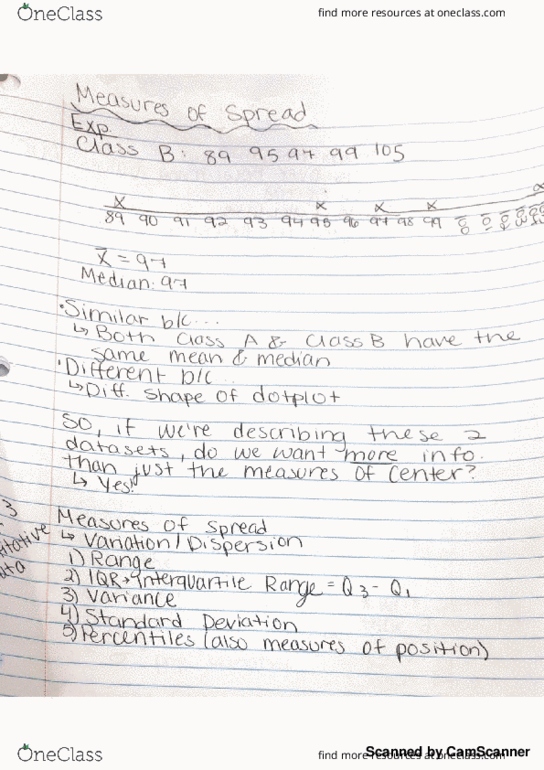 OneClass
find more resources at oneclass.com
Measures of Spread
Exp.
Class B: 89 95 97 99 105
X X X X
89 90 91 92 93 94 95 96 97 98 99
x̄ = 97
Median: 97
•Similar b/c...
↳ Both Class A & Class B have the
same mean & median
•Different b/c...
↳ Diff. shape of dotplot
So, if we're describing these 2
datasets, do we want more info.
than just the measures of center?
↳ Yes!
Measures of Spread
↳ Variation/Dispersion
1) Range
2) IQR→Interquartile Range = Q3 - Q1
3) Variance
4) Standard Deviation
5) Percentiles (also measures of position)
OneClass
find more resources at oneclass.com
Scanned by CamScanner